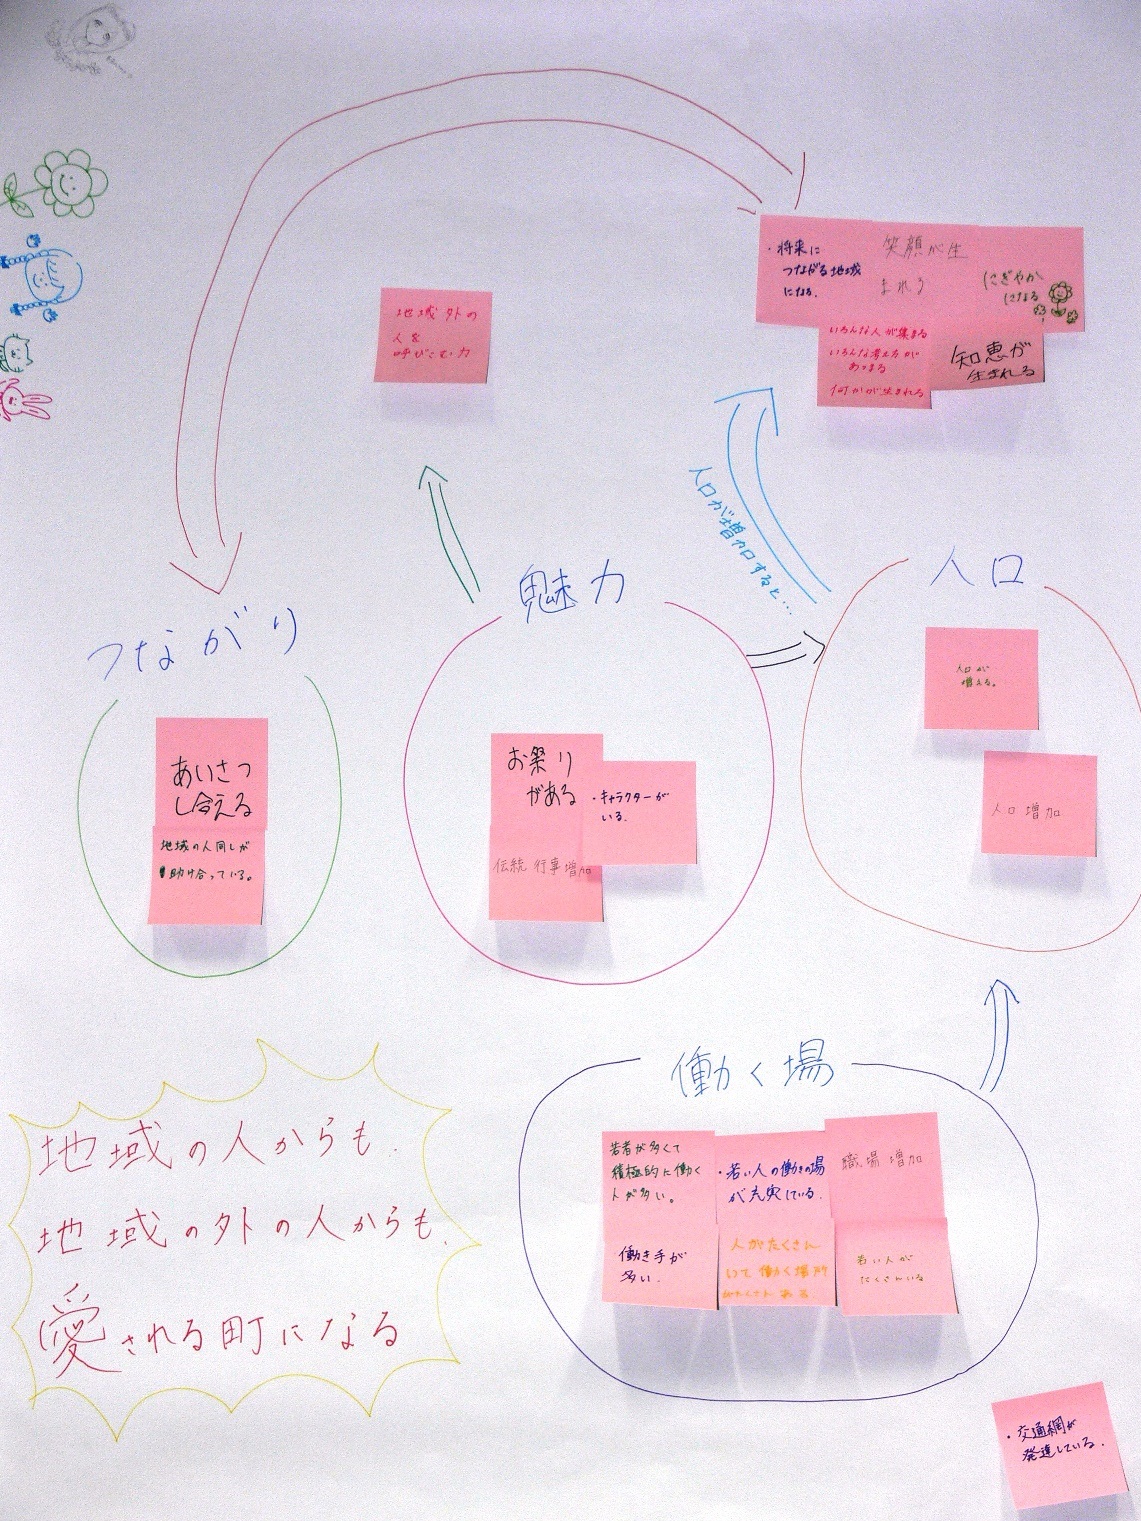 ・将来に
つながる地域
になる。
笑顔が生
まれる
にぎやか
になる
いろんな人が集まる
いろんな考え方が
あつまる
何かが生まれる
知恵が
生まれる
地域外の
人を
呼びこむ力
人口が増加すると…
つながり
あいさつ
し合える
地域の人同しが
助け合っている。
魅力
お祭り
がある
・キャラクターが
いる.
伝統行事増加
人口
人口が
増える。
人口増加
働く場
若者が多くて
積極的に働く
人が多い。
・若い人の働きの場
が充実している.
職場増加
働き手が
多い.
人がたくさん
いて働く場所
がたくさんある.
若い人が
たくさんいる
地域の人からも.
地域の外の人からも.
愛される町になる
・交通網が
発達している.